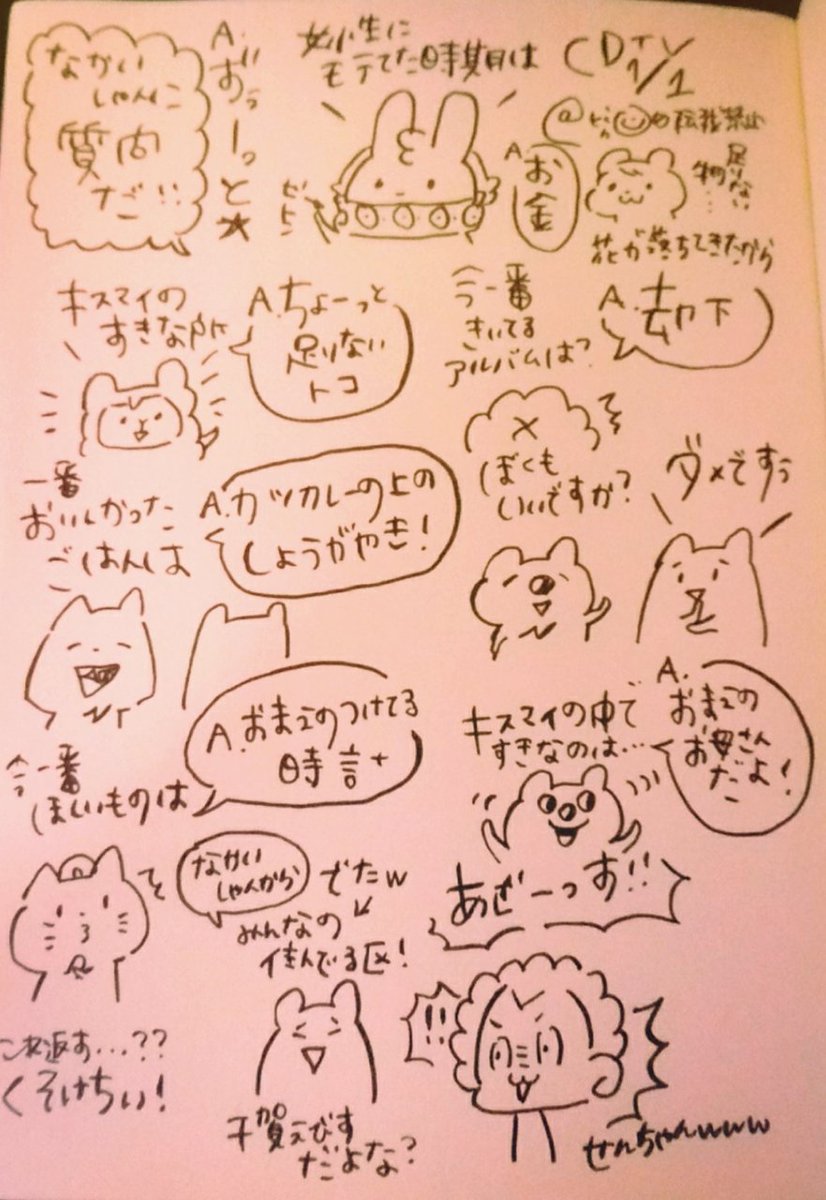 なかい
しゃんに
質問
だ!!
A.
ずぅーっと★
女小生に
モテてた時期は
CDTV
1/1
花が落ちてきたから
足りない
物…
A.
お
金
キスマイの
すきな所
A.ちょーっと
足りない
トコ
今一番
きいてる
アルバムは?
A.却下
ぼくも
いいですか?
ダメですぅ
一番
おいしかった
ごはんは
A.カツカレーの上の
しょうがやき!
今一番
ほしいものは
A.おまえのつけてる
時計
キスマイの中で
すきなのは…
A.
おまえの
お母さん
だよ!
あざーっす!!
なかい
しゃんから
でたw
みんなの
住んでる区!
返す…??
くそけちぃ!
千賀えびす
だよな?
!!
せんちゃんwww